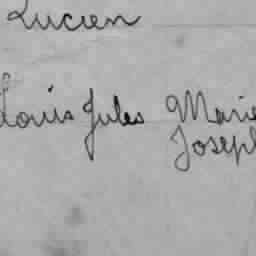 Lucien
Louis Jules Marie
Joseph